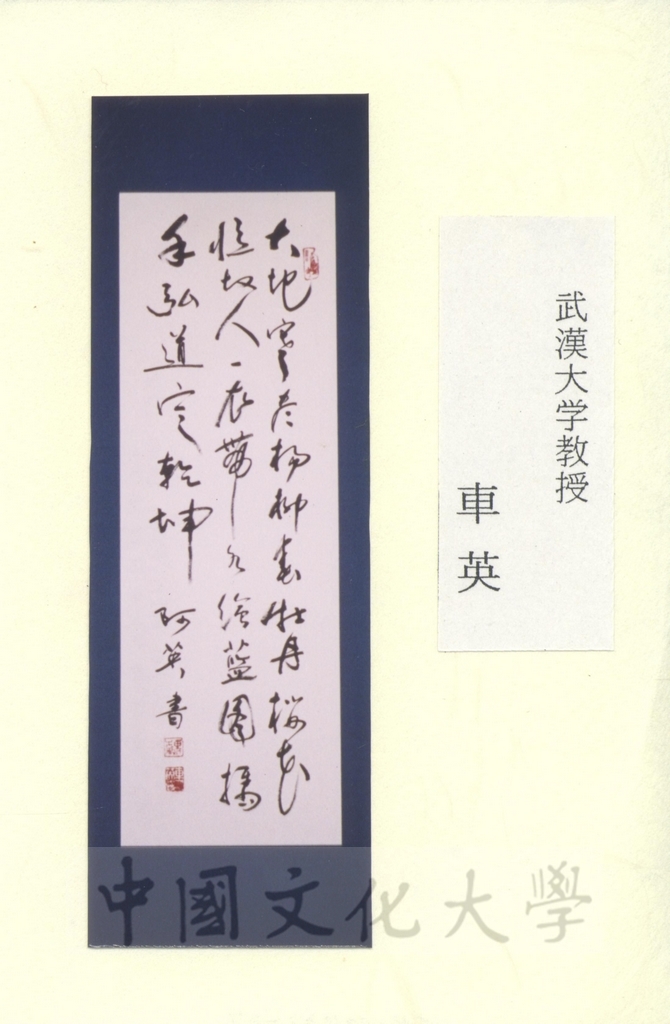 大地寒冬楊柳春牡丹櫻花
憶故人一衣帶水繪藍圖攜
手弘道定乾坤 阿英書
武漢大学教授
車英
中國文化大學